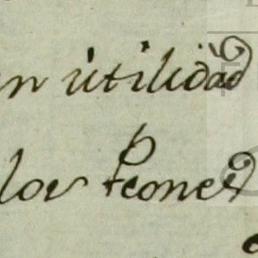 n utilidad
los Peones